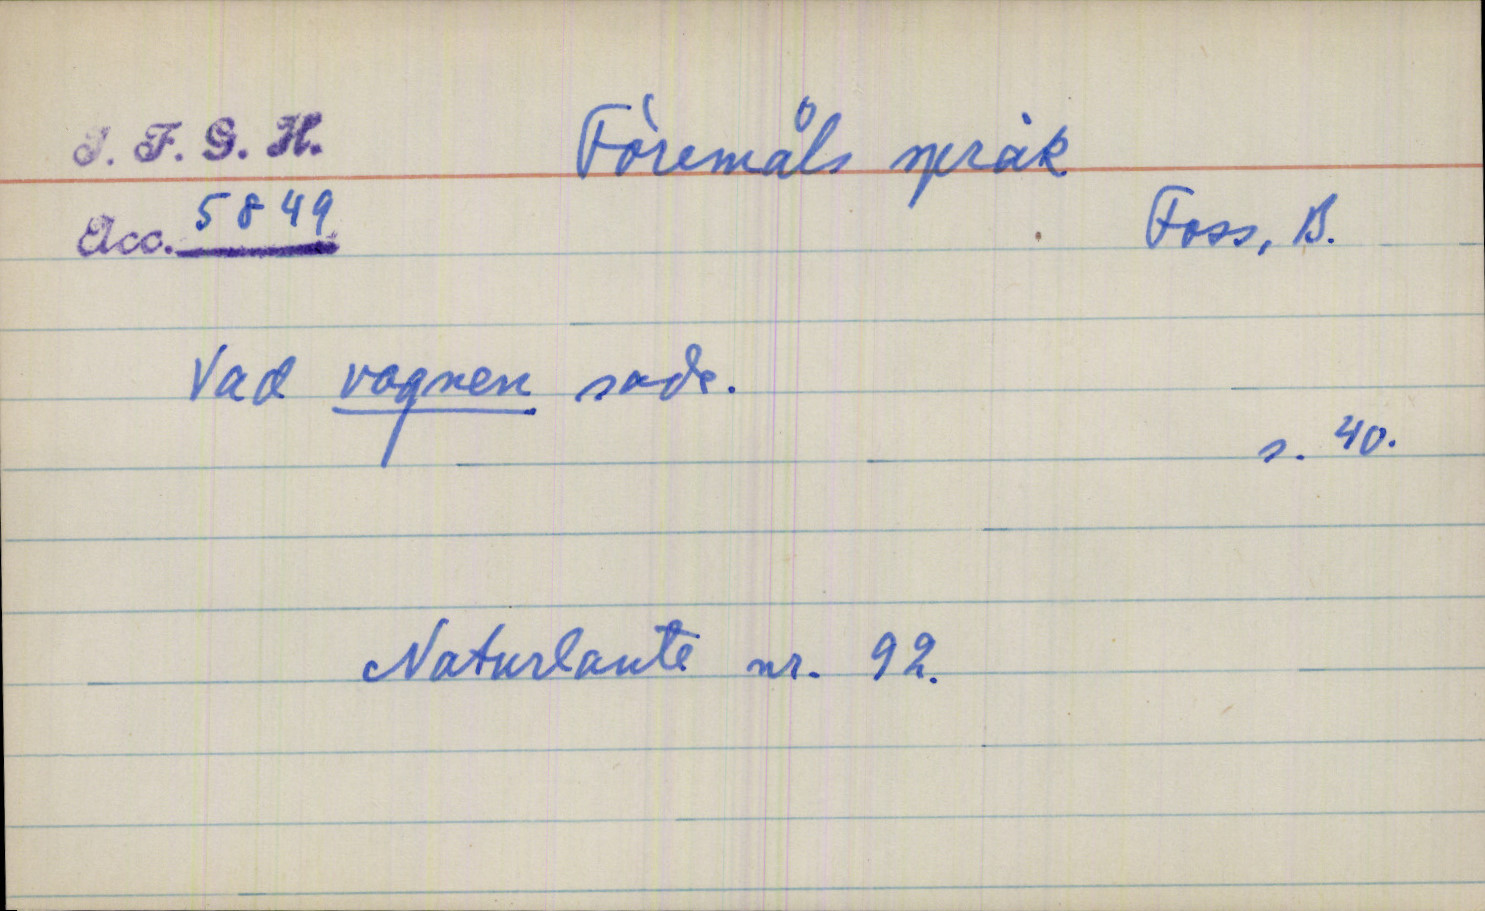 I. F. G. H.
Föremåls språk
Acc. 5849
Foss, B.
Vad vagnen sade.
s. 40.
Naturlaute nr. 92.